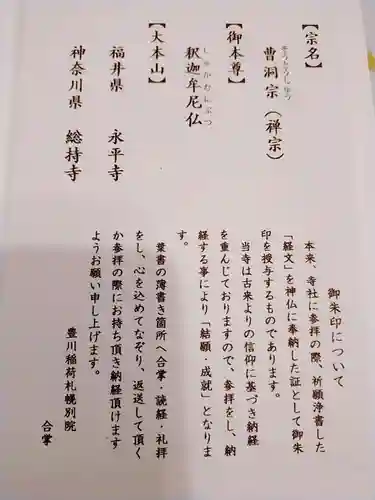 【宗名】
そうとうしゅう
曹洞宗(禅宗)
【御本尊】
しゃかむにぶつ
釈迦牟尼仏
【大本山】
福井県 永平寺
神奈川県 総持寺
御朱印について
本来、寺社に参拝の際、祈願浄書した
「経文」を神仏に奉納した証として御朱
印を授与するものであります。
当寺は古来よりの信仰に基づき納経
を重んじておりますので、参拝をし、納
経する事により「結願・成就」となりま
す。
葉書の薄書き箇所へ合掌・読経・礼拝
をし、心を込めてなぞり、返送して頂く
か参拝の際にお持ち頂き納経頂けます
ようお願い申し上げます。
豊川稲荷札幌別院
合掌